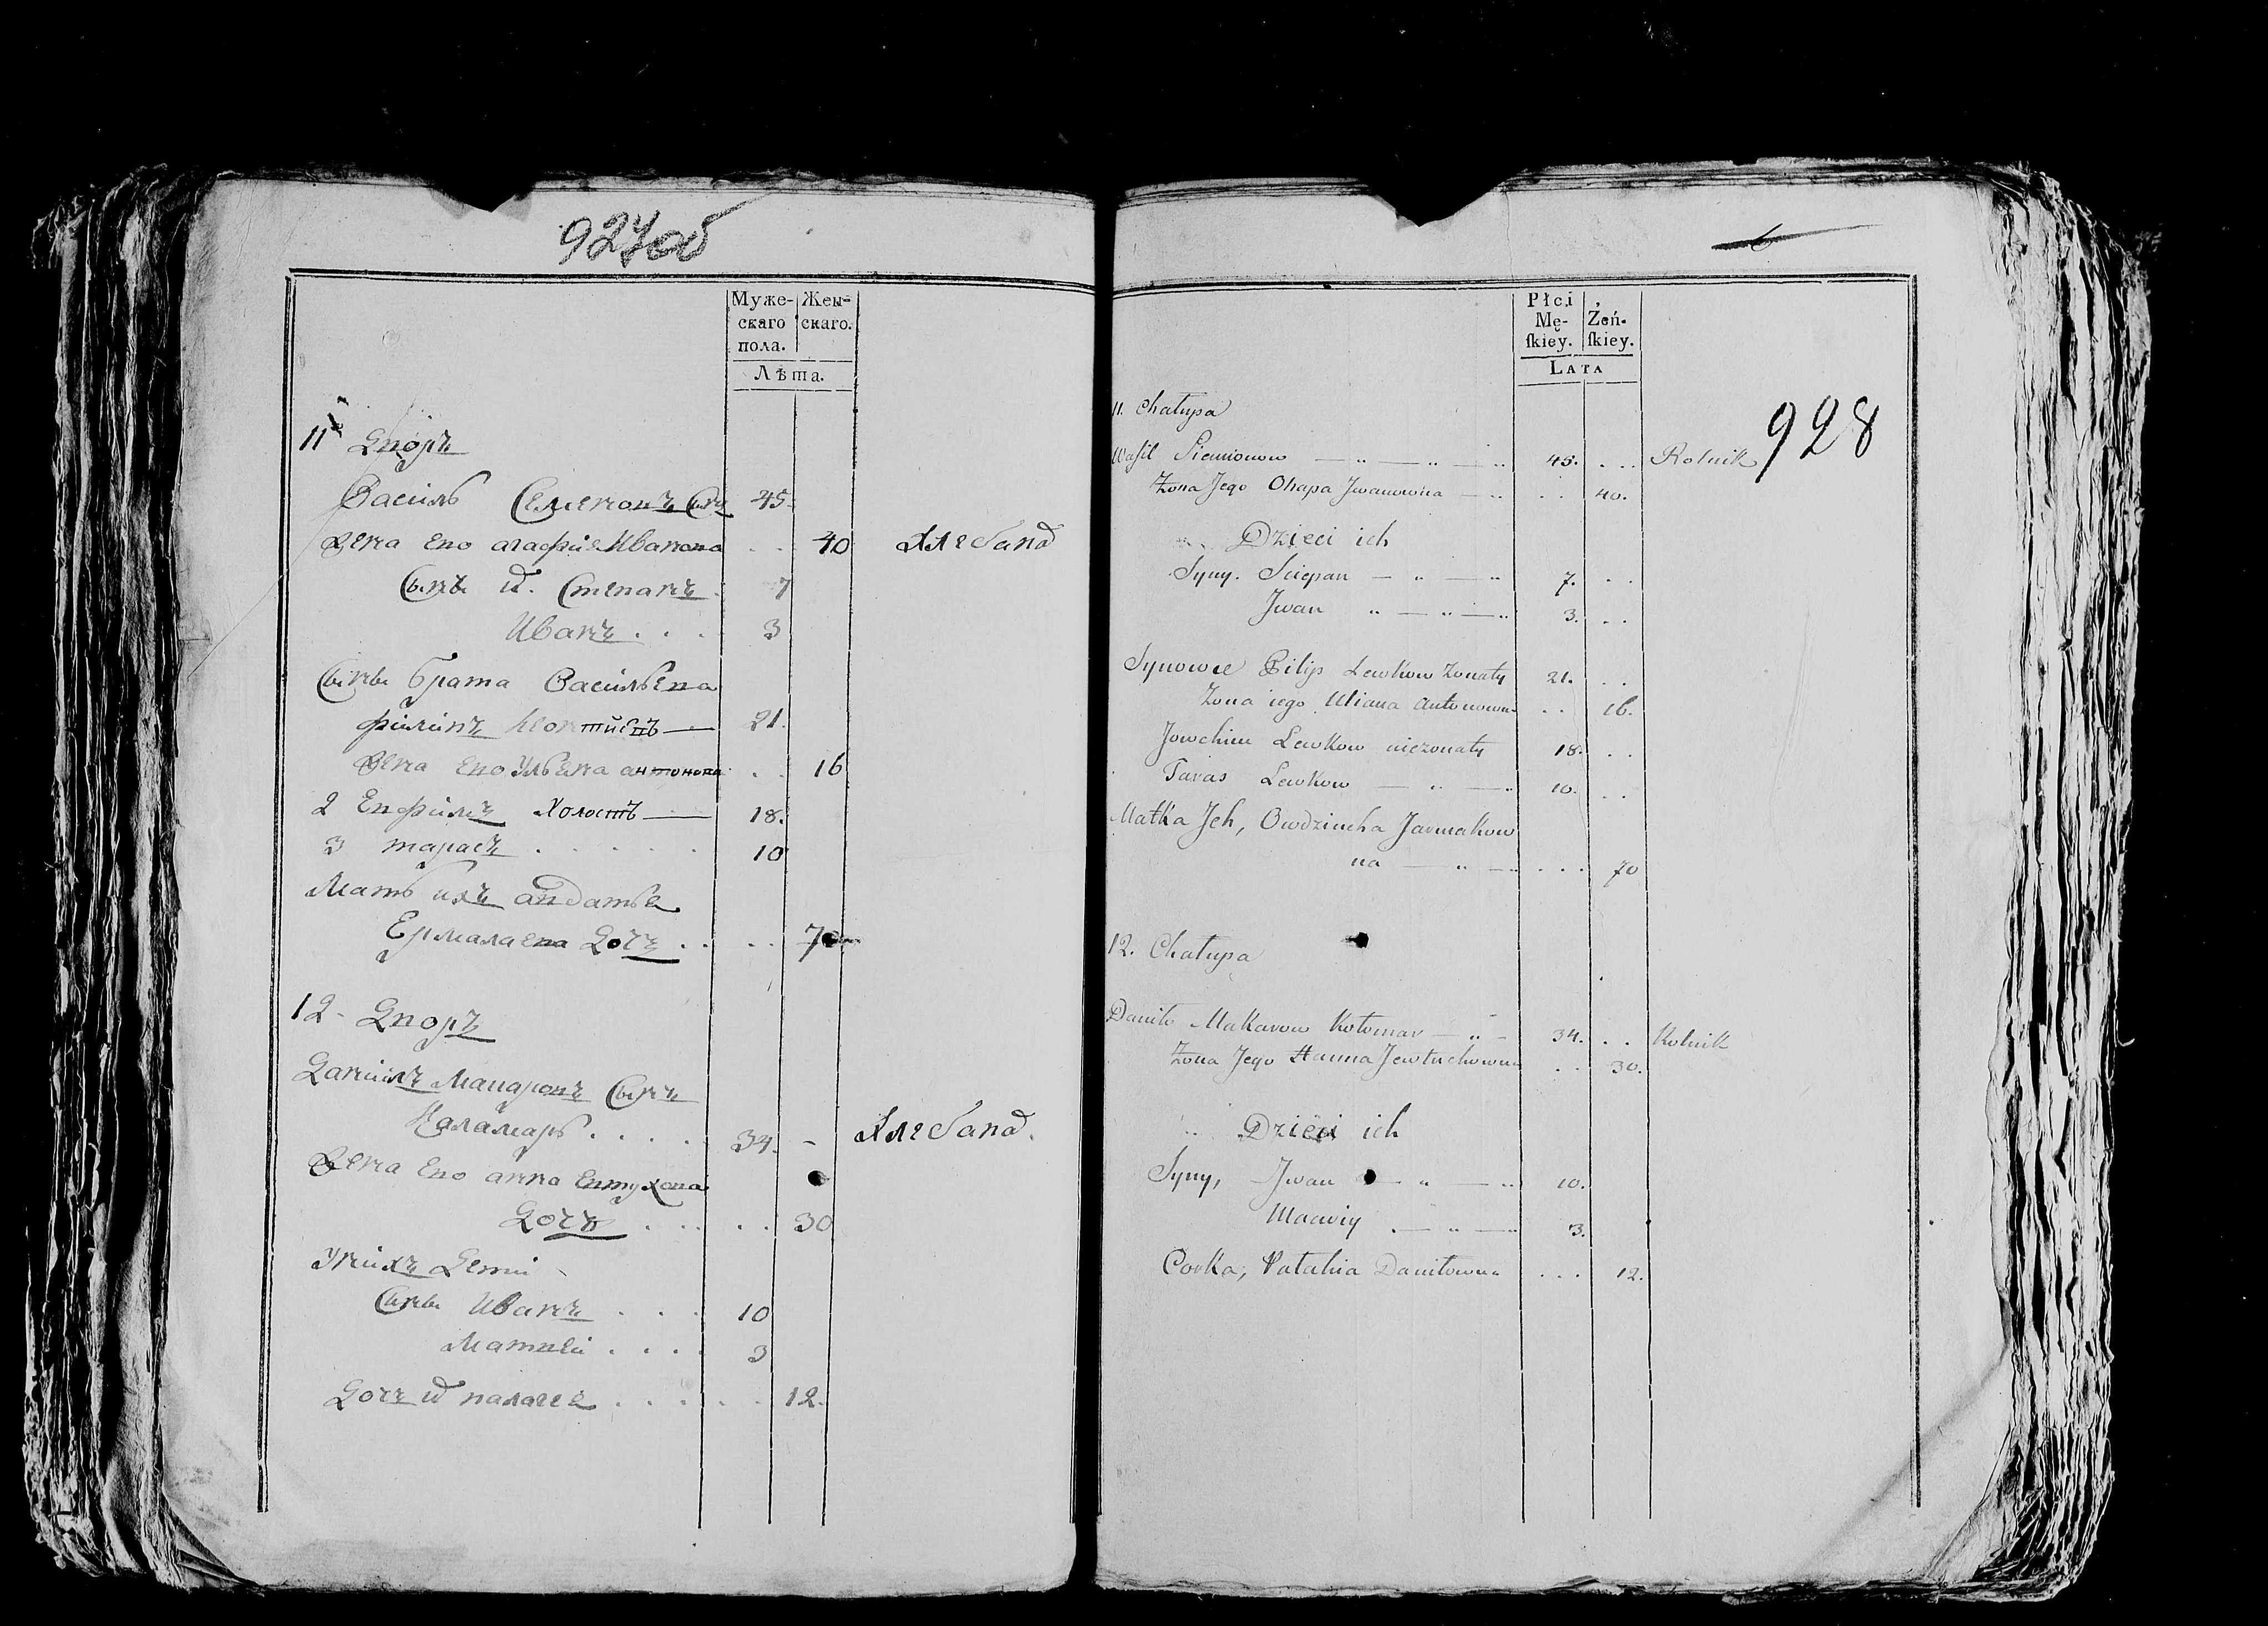 927об
Муже- Жен-
скаго скаго.
пола.
Лѣта.
11 Дворъ
Василь Семеновъ Снъ 45.
Жена Его агафия Иванова . . 40 Хлебапа
Сынъ и. Степанъ 7
Иванъ . . . 3
Сынъ брата Васильева
филипъ 21.
Жена Его Ульяна антонова . . 16
2 Ефимъ Холостъ — 18.
3 тарасъ . . . . . 10
Мать ихъ авдотья
Ермалаева Дочъ . . . . 70
12 - Дворъ
Данилъ Макаровъ Сынъ
Каламаръ . . . . 34. -  Хлебапа.
Жена Его анна Евтухова
Дочъ . . . . . 30
У нихъ Дети -
Сынъ Иванъ . . . 10
Матвеи . . . . 3
Дочъ и палагея . . . . . 12.
Płci Żeń-
Mę- ſkiey.
ſkiey.
LATA
928
11. Chałupa
Wasil Siemionow — „ — „ — „ 45. . . . Rolnik
Żona Jego Ohapa Jwanowna — „ . . 40.
Dzieci ich
Syny. Sciepan — „ — „ 7. . .
Jwan „ — „ — „ 3. . .
Synowce Pilip Lewkow Żonaty 21. . .
Żona iego Uliana Antonowna . . 16.
Jowchim Lewkow nieżonaty 18. . .
Taras Lewkow — „ — „ 10. . .
Matka Jch, Owdziucha Jarmakow
na — „ — . . . 70
12. Chałupa
Daniło Makarow Kołomar — „ - 34. . . Rolnik
Żona Jego Hanna Jewtuchowna . . 30.
Dzieci ich
Syny, Jwan — „ — „ 10.
Maciwiy . — „ — „ 3.
Corka, Patahia Daniłowna . . . 12.